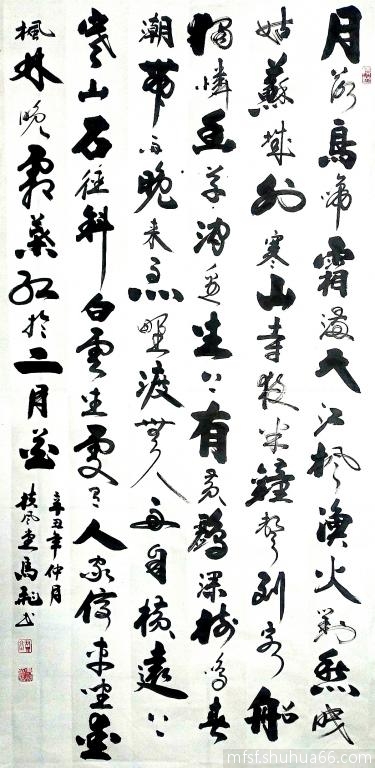 月落烏啼霜滿天江楓漁火對愁眠
姑蘇城外寒山寺夜半鐘聲到客船
獨憐幽草澗邊生上有黃鸝深樹鳴春
潮帶雨晚來急野渡無人舟自橫遠上
寒山石徑斜白雲生處有人家停車坐愛
楓林晚霜葉紅於二月花
辛丑年仲月
風堂馬飛書
mfst.shuhua66.com